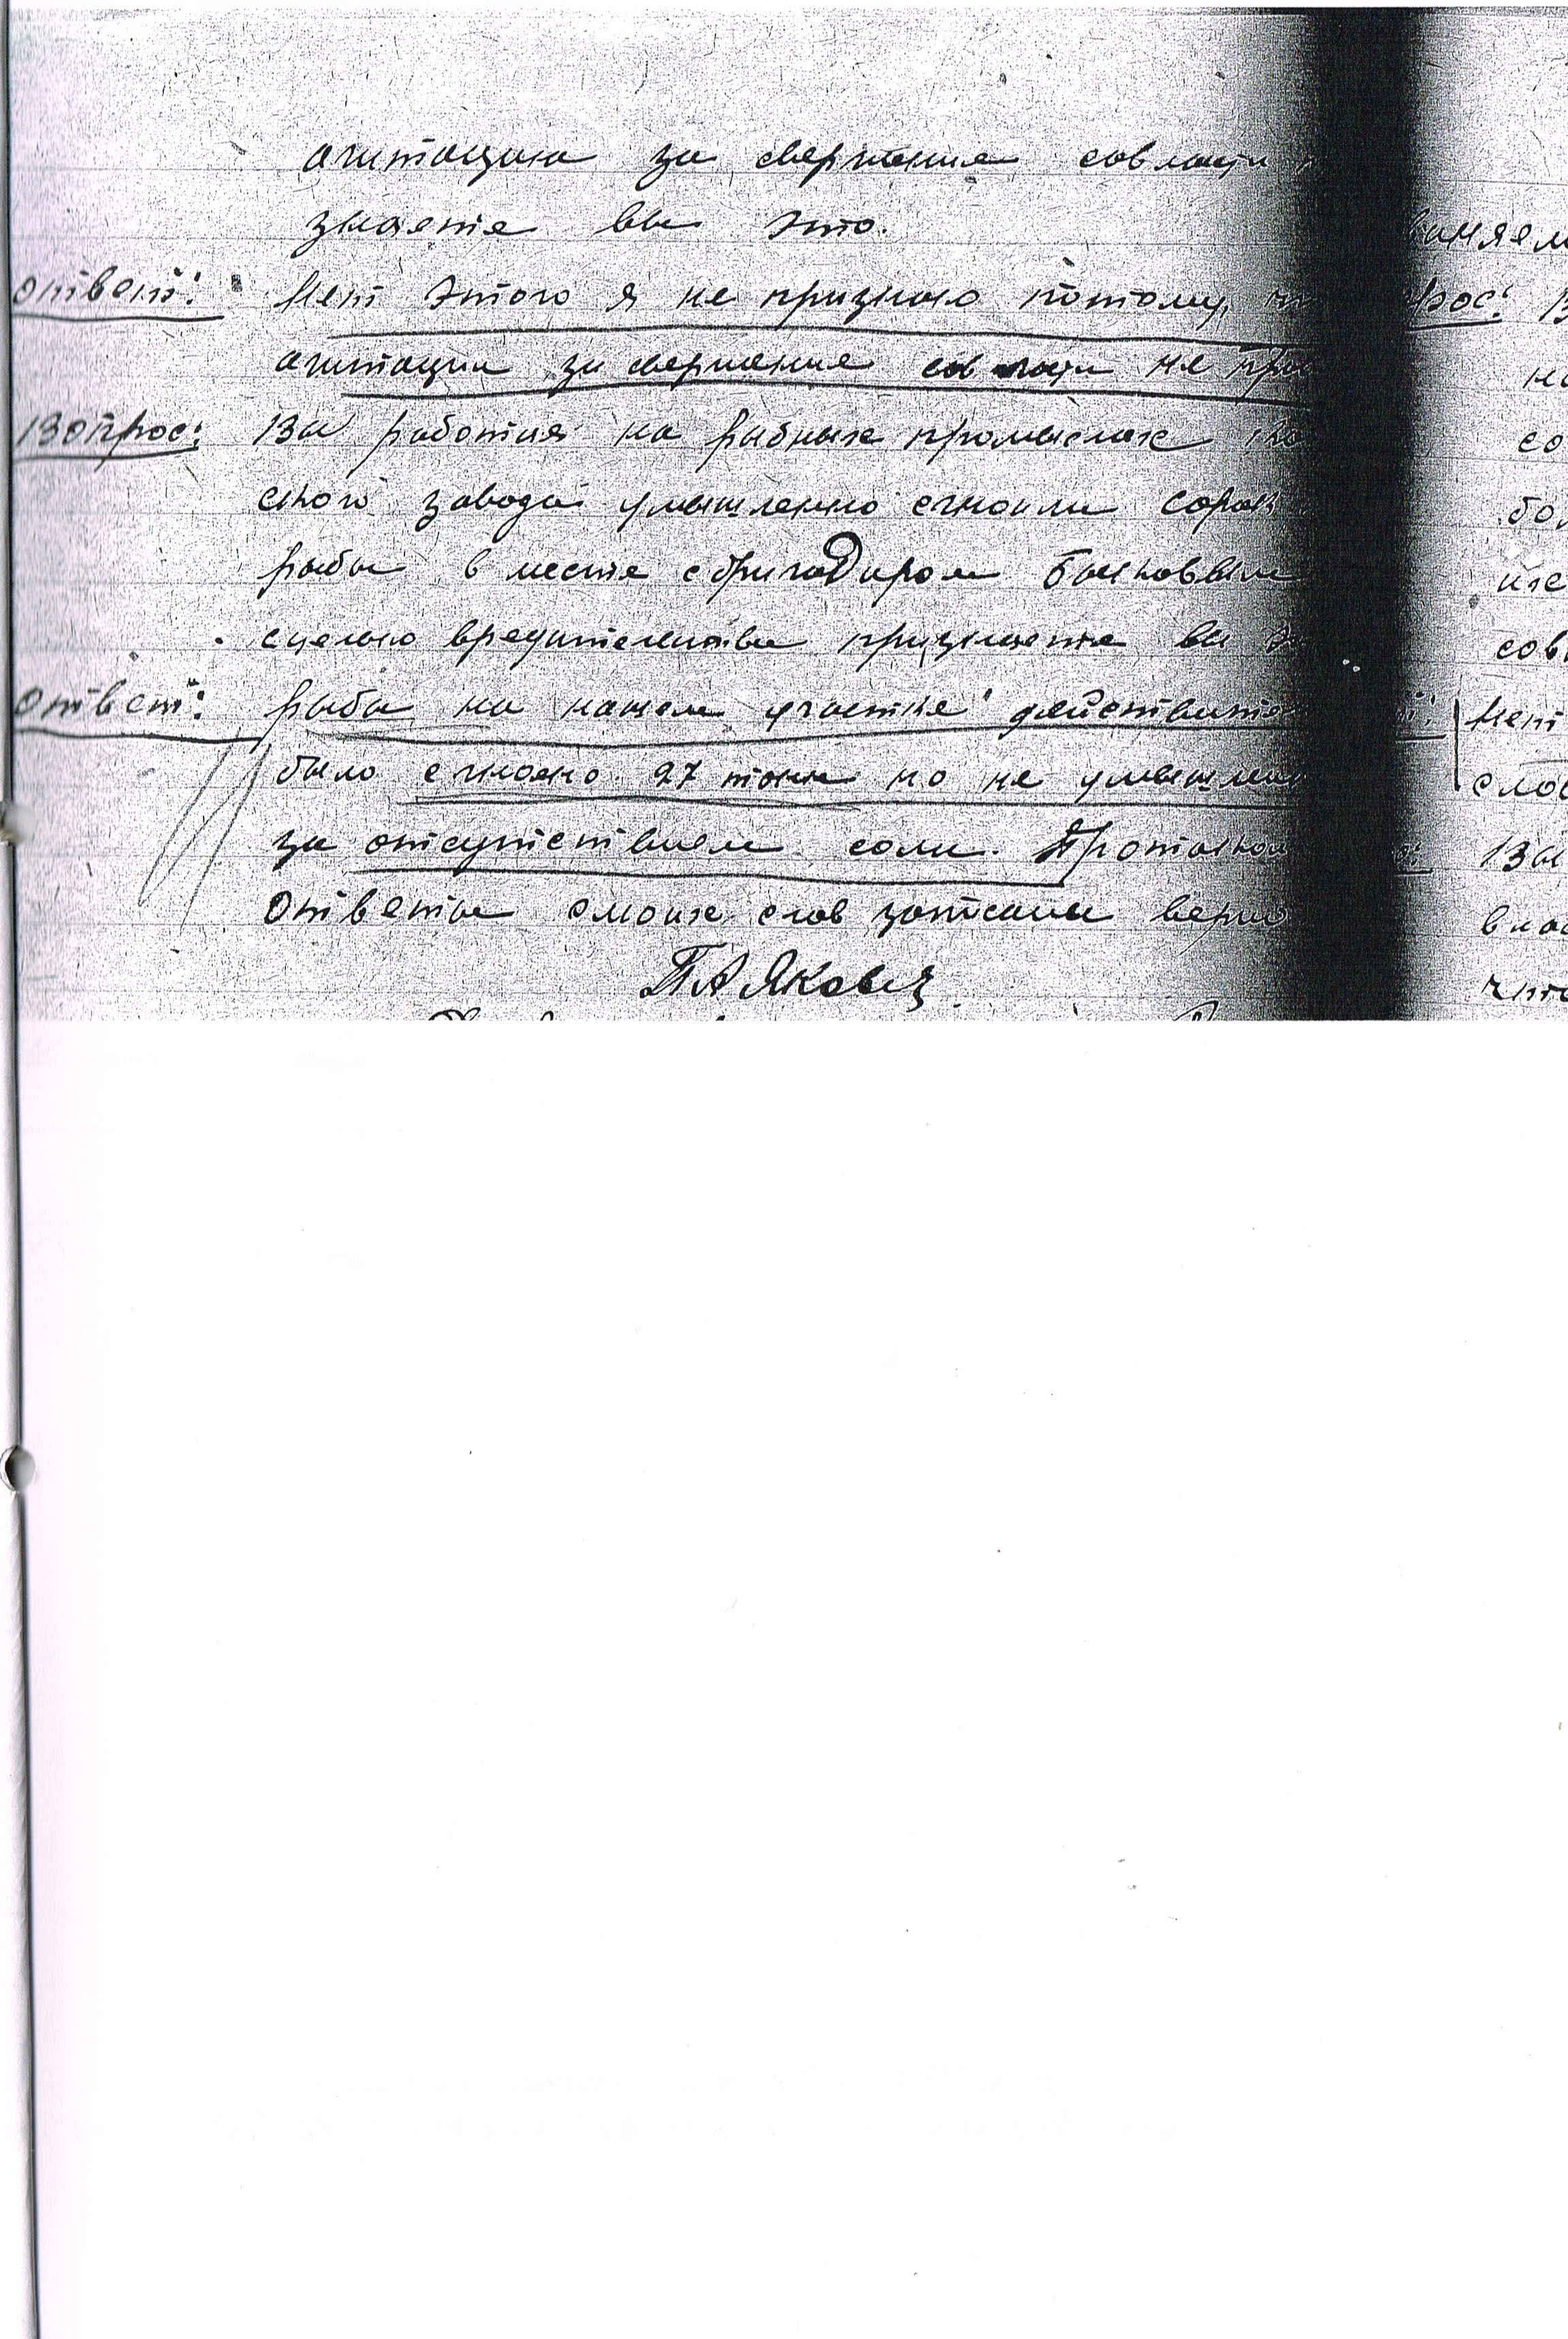 агитацию за свержения совласти
знаете вы это.
ответ: Нет этого я не признаю потому,
агитации за свержения сов ласти не
Вопрос: Вы работая на рыбных промыслах
ского завода умышленно сгноили сорок
рыбы в месте с бригадиром Быковвым
сцелью вредительства признаете вы
ответ: рыбы на нашем участке действител
было сгноено 27 тонн но не умышлен
за отсутствием соли. Протокол
Ответы смоих слов записаны верно
ПА Яковец
виняем
рос: В
но
со
бо
их
сов
Нет
слов
Вы
влас
что